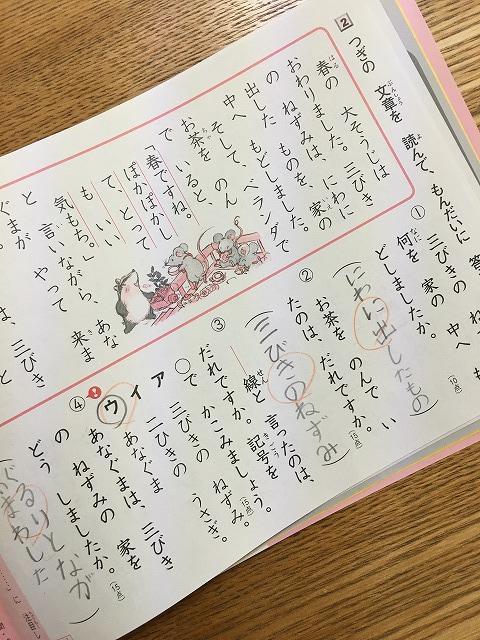 2 つぎの 文章を 読んで、もんだいに 答
春の 大そうじは
おわりました。三びき
の ねずみは、にわに
出した ものを、家の
中へ もどしました。
そして、ベランダで
お茶を のん
で いると、
「春ですね。
ぽかぽかし
て、とって
も いい
気もち。」
と 言いながら、あな
ぐまが やって 来ま
① 三びきの ね
家の 中へ
何を も
どしましたか。(10点)
(にわに出したもの)
② お茶を のんで い
たのは、だれですか。(15点)
(三びきのねずみ)
③ ――線と 言ったのは、
だれですか。記号を
○で かこみましょう。(15点)
ア 三びきの ねずみ。
イ 二ひきの うさぎ。
ウ あなぐま
④ あなぐまは、三びき
の ねずみの 家を
どう しましたか。(15点)
るりとなが
まわした